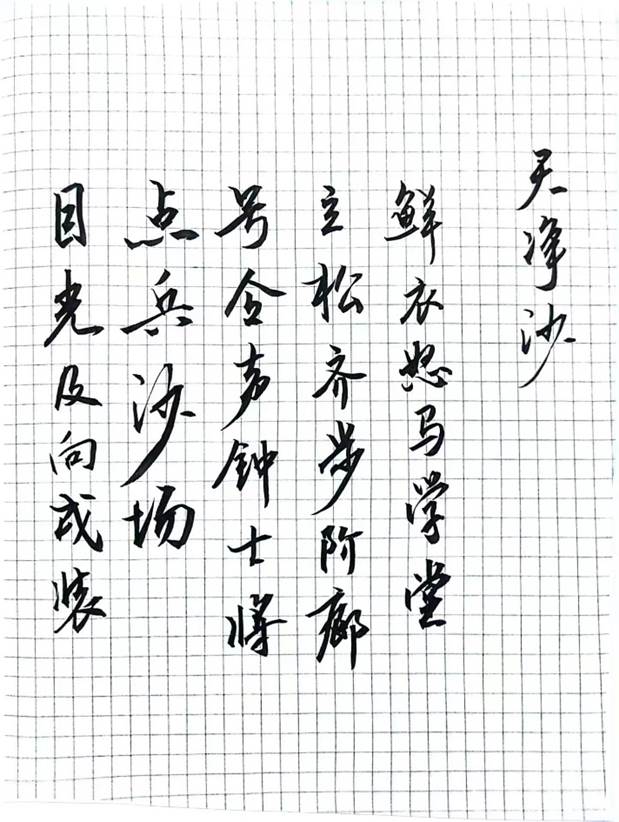 天净沙
鲜衣怒马学堂
立松齐步阶廊
号令声钟士将
点兵沙场
目光及向戎装